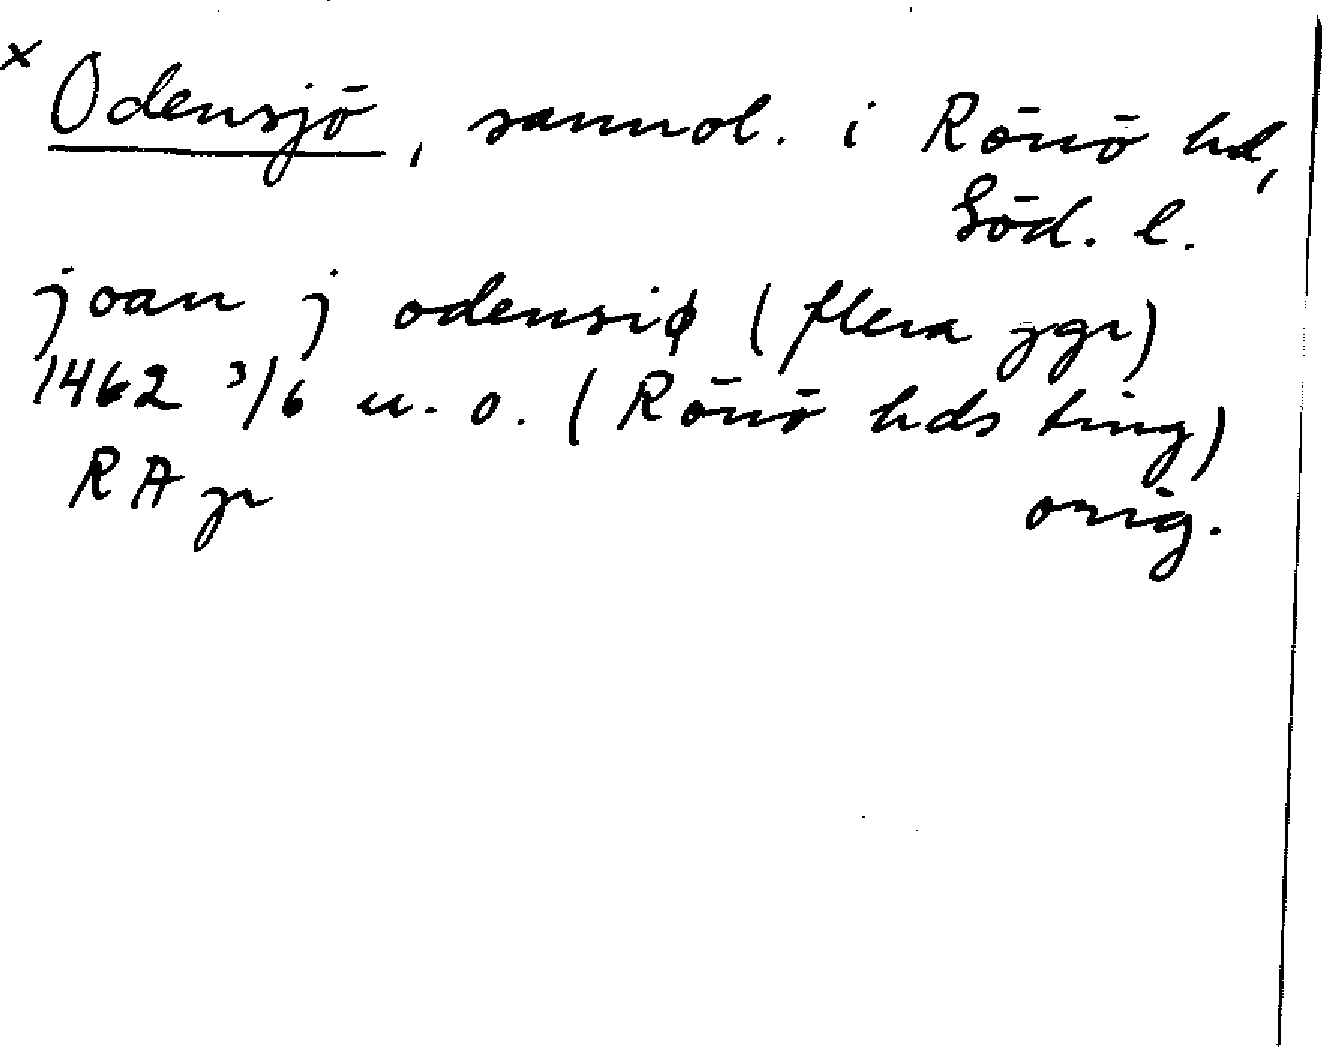 x Odensjö, sannol. i Rönö hd,
Söd. l.
joan j odensiø (flera ggr)
1462 3/6 u. o. (Rönö hds ting)
RA pr orig.